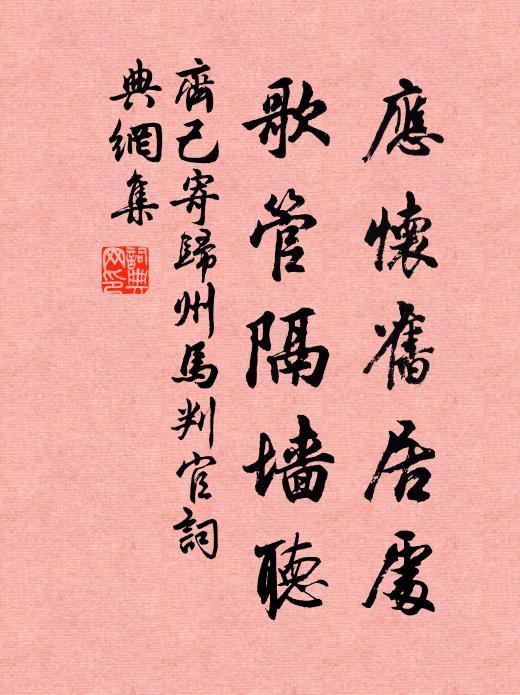 應懷舊居處
歌管隔墙聽
齊己寄歸州馬判官詞
典網集
詞典網印